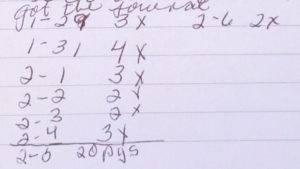 got the journal
1-29 3x 2-6 2x
1-31 4x
2-1 3x
2-2 2x
2-3 2x
2-4 3x
2-5 20pgs